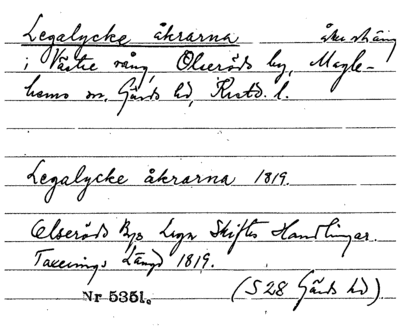 Legalycke åkrarna åkersträng
i Västre vång, Olseröds by, Magle-
hems sn, Gärds hd, Kristd. l.
Legalycke åkrarna 1819.
Olseröds Bys Laga Skiftes Handlingar.
Taxerings Längd 1819.
Nr 5351. (S 28 Gärds hd)